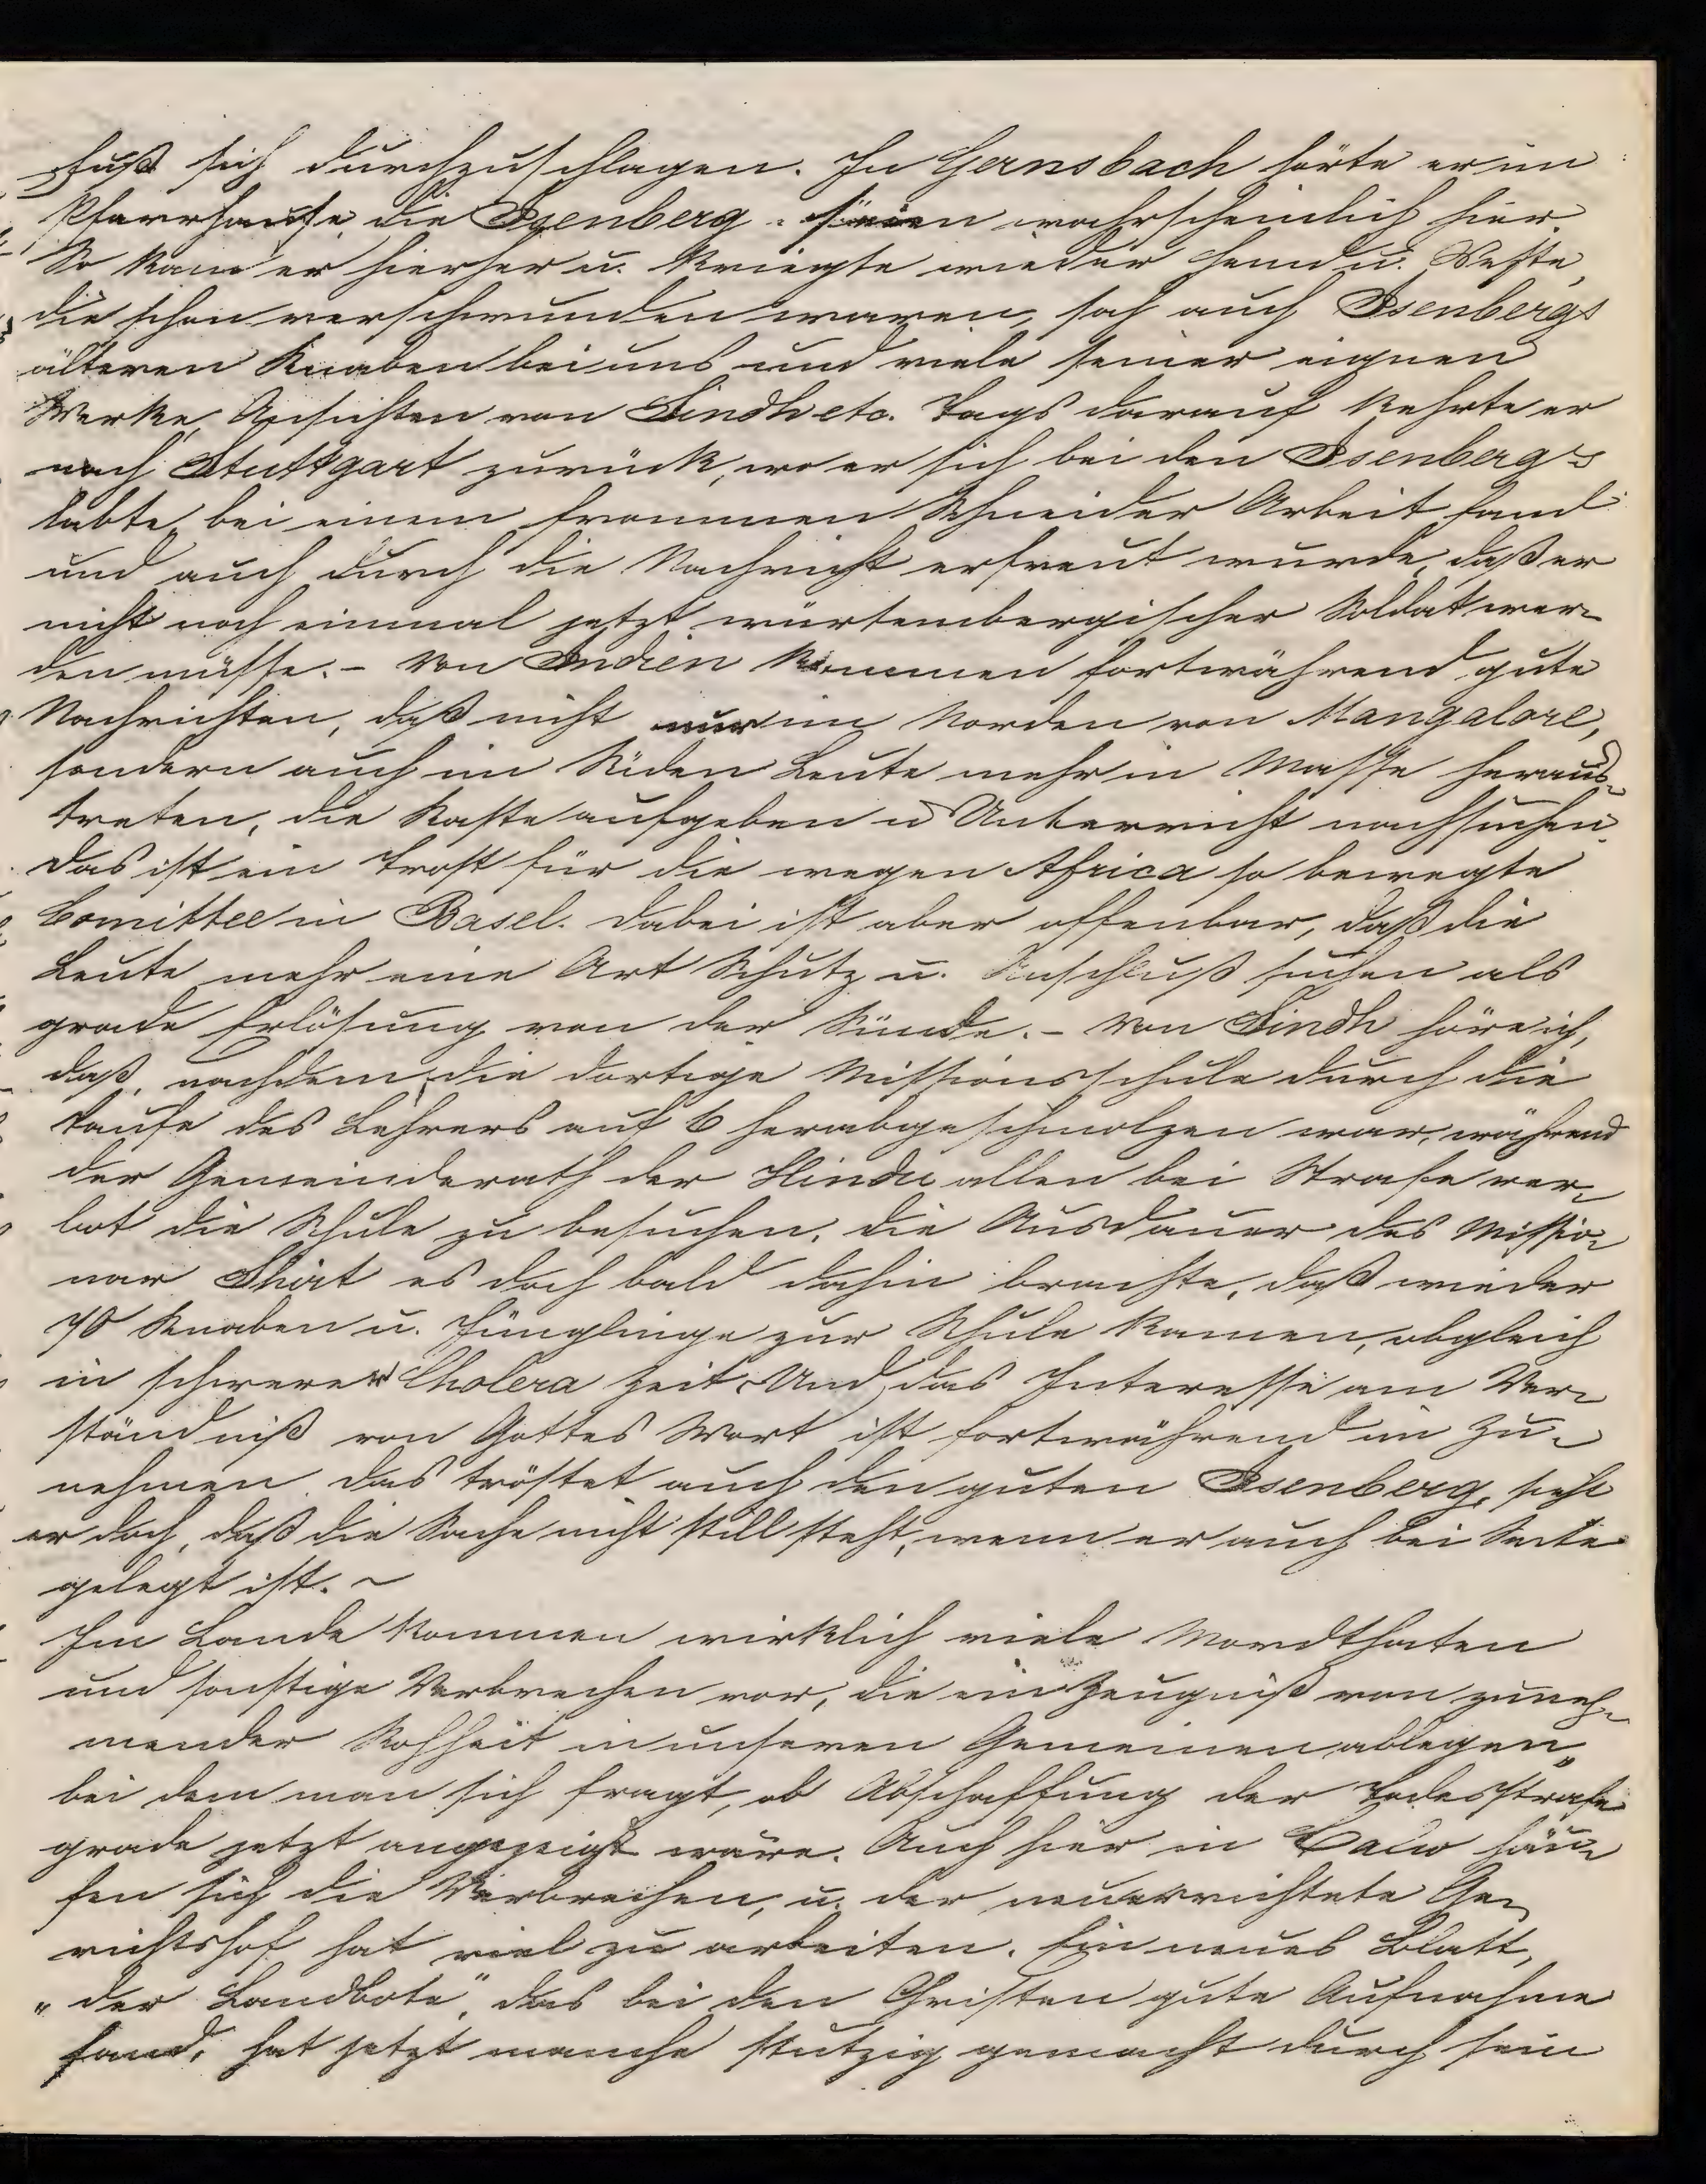 Fuß sich durchzuschlagen. In Gernsbach hörte er im
Pfarrhause, die Isenberg seien wahrscheinlich hier.
So kam er hierher u. kriegte wieder Hemd u. Weste,
die schon verschwunden waren, sah auch Isenbergs
älteren Knaben bei uns und viele seiner eignen
Werke, Ansichten von Sindh etc. Tags darauf kehrte er
nach Stuttgart zurück, wo er sich bei den Isenbergs
labte, bei einem frommen Schneider Arbeit fand
und auch durch die Nachricht erfreut wurde, daß er
nicht noch einmal jetzt würtembergischer Soldat wer-
den müsse. - Von Indien kommen fortwährend gute
Nachrichten, daß nicht nur im Norden von Mangalore,
sondern auch im Süden Leute mehr in Masse heraus-
treten, die Kaste aufgeben u Unterricht nachsuchen.
Das ist ein Trost für die wegen Africa so bewegte
Comittee in Basel. Dabei ist aber offenbar, daß die
Leute mehr eine Art Schutz u. Anschluß suchen als
grade Erlösung von der Sünde. - Von Sindh höre ich,
daß, nachdem die dortige Missionsschule durch die
Taufe des Lehrers auf 6 herabgeschmolzen war, während
der Gemeinderath der Hindu allen bei Strafe ver-
bot die Schule zu besuchen, die Ausdauer des Missio-
nar Shirt es doch bald dahin brachte, daß wieder
70 Knaben u. Jünglinge zur Schule kamen, obgleich
in schwerer Cholera Zeit. Und das Interesse am Ver-
ständniß von Gottes Wort ist fortwährend im Zu-
nehmen. Das tröstet auch den guten Isenberg, sieht
er doch, daß die Sache nicht still steht, wenn er auch bei Seite
gelegt ist. ~
Im Lande kommen wirklich viele Mordthaten
und sonstige Verbrechen vor, die ein Zeugniß von zuneh-
mender Rohheit in unseren Gemeinen ablegen,
bei dem man sich fragt, ob Abschaffung der Todesstrafe
grade jetzt angezeigt wäre. Auch hier in Calw häu-
fen sich die Verbrechen, u. der neuerrichtete Ge-
richtshof hat viel zu arbeiten. Ein neues Blatt,
„der Landbote", das bei den Christen gute Aufnahme
fand, hat jetzt manche stutzig gemacht durch sein